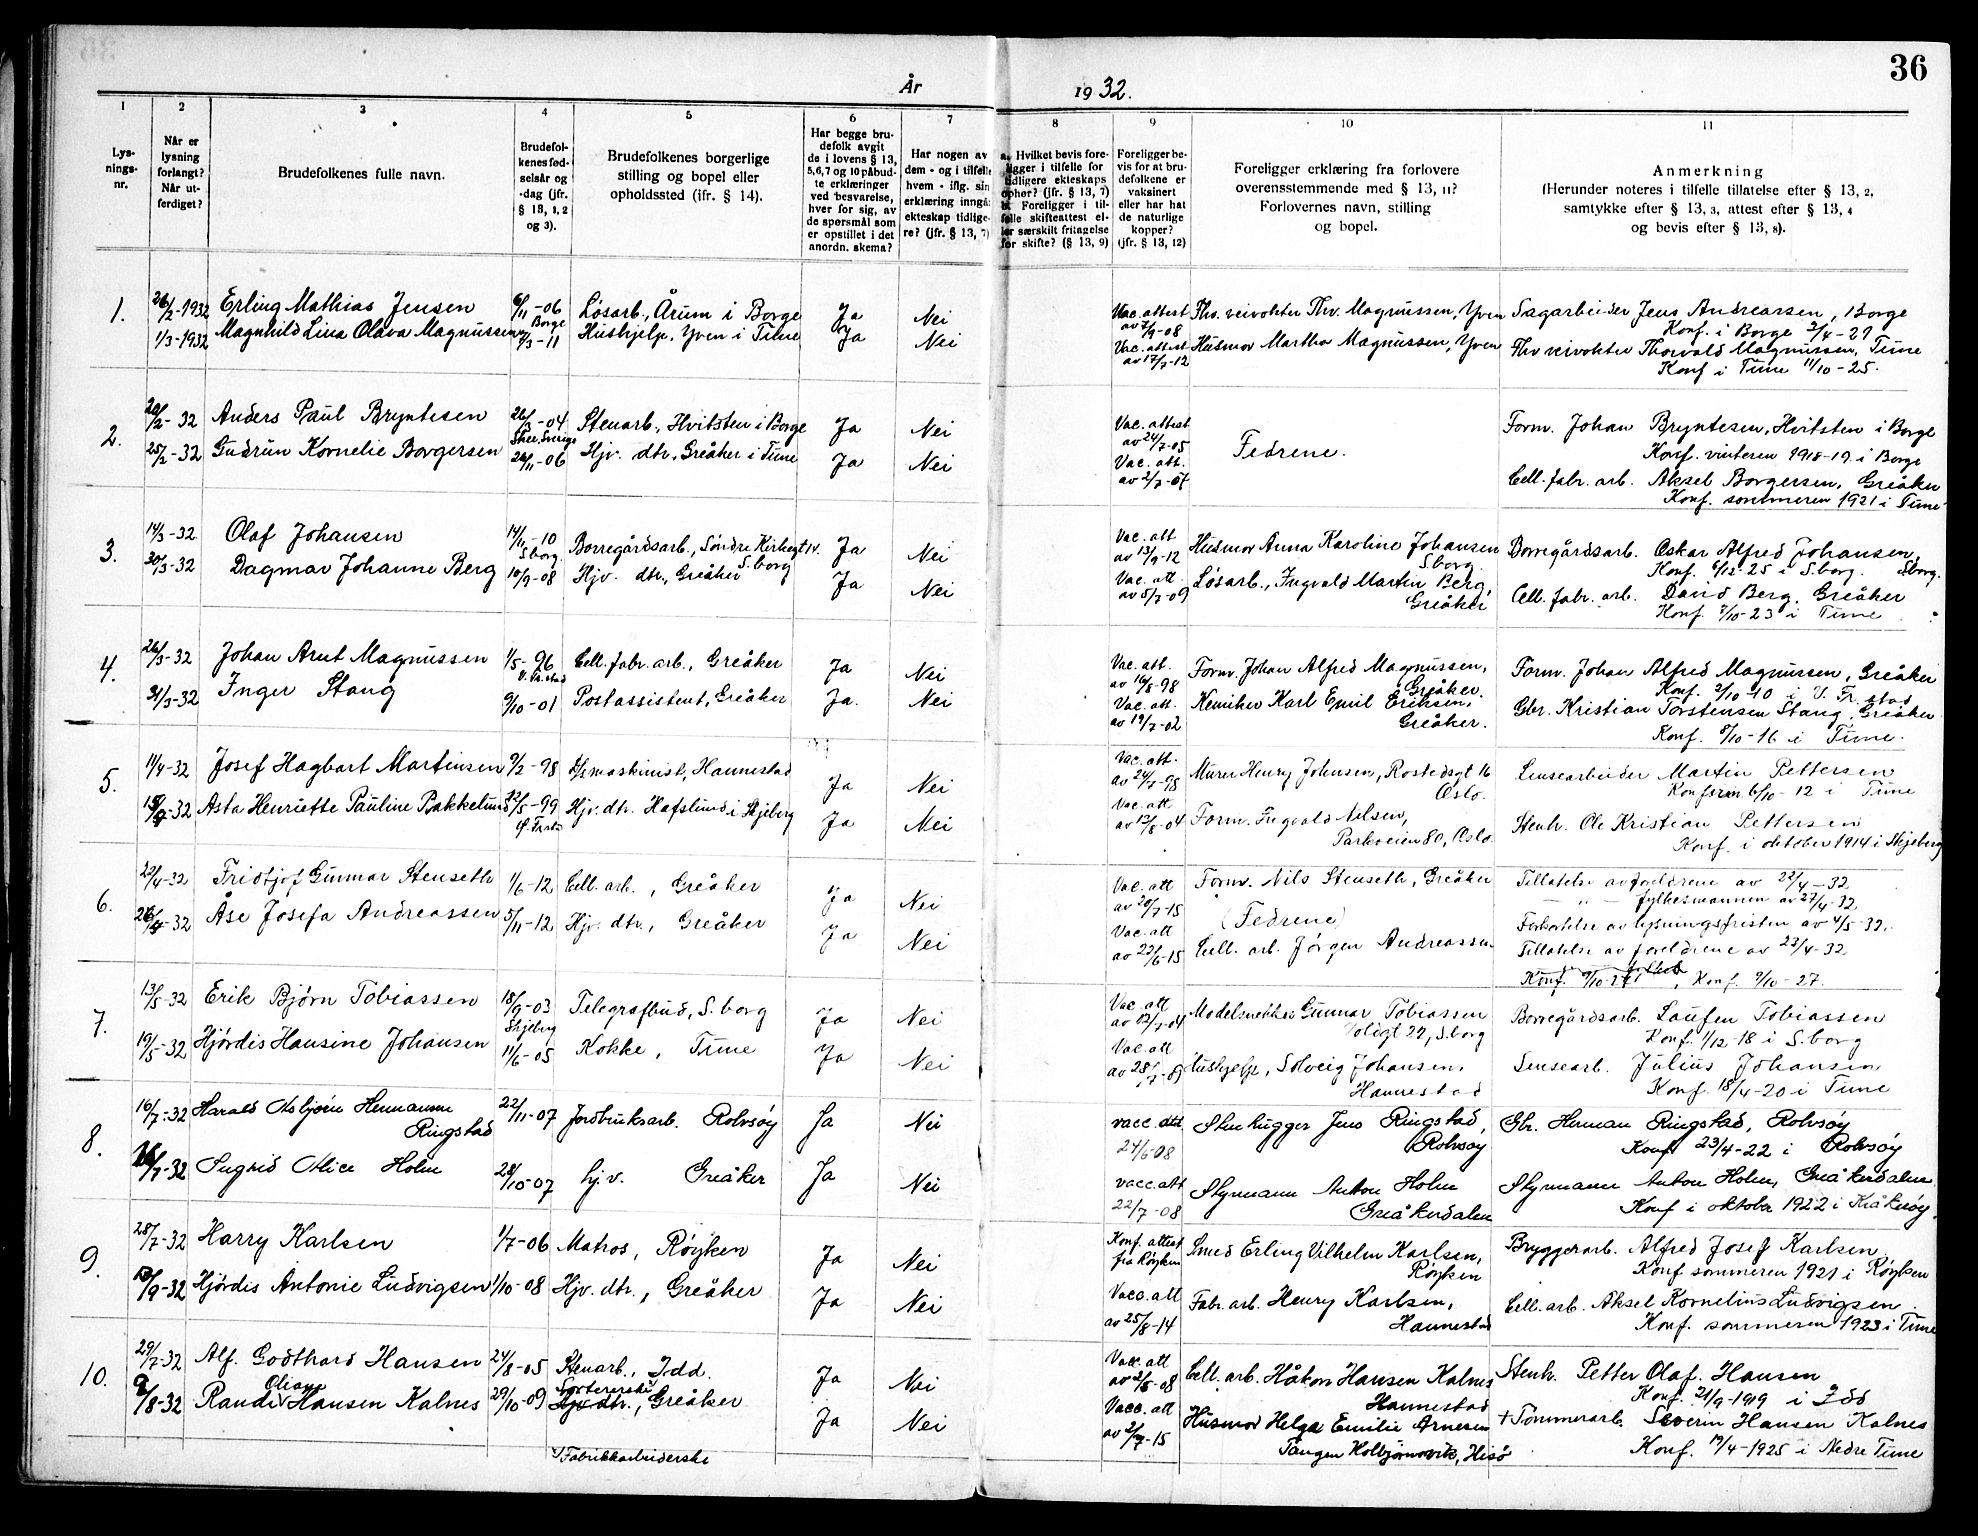 36
År 1932.
1 2 3 4 5 6 7 8 9 10 11
Lys-
nings-
nr.
Når er
lysning
forlangt?
Når ut-
ferdiget?
Brudefolkenes fulle navn.
Brudefol-
kenes fød-
selsår og
-dag (jfr.
§ 13, 1, 2
og 3).
Brudefolkenes borgerlige
stilling og bopel eller
opholdssted (ifr. § 14).
Har begge bru-
defolk avgit
de i lovens § 13,
5,6,7 og 10 påbud-
te erklæringer
ved besvarelse,
hver for sig, av
de spørsmål som
er opstillet i det
anordn. skema?
Har nogen av
dem - og i tilfelle
hvem - iflg. sin
erklæring inngå
ekteskap tidlige-
re? (jfr. § 13, 7)
a. Hvilket bevis fore-
ligger i tilfelle for
tidligere ekteskaps
ophør? (jfr. § 13, 7)
b. Foreligger i til-
felle skifteattest el-
ler særskilt fritagelse
for skifte? (§ 13, 9)
Foreligger be-
vis for at bru-
defolkene er
vaksinert
eller har hat
de naturlige
kopper?
(jfr. § 13, 12)
Foreligger erklæring fra forlovere
overensstemmende med § 13, 11?
Forlovernes navn, stilling
og bopel.
Anmerkning
(Herunder noteres i tilfelle tillatelse efter § 13, 2,
samtykke efter § 13, 3, attest efter § 13, 4
og bevis efter § 13, 8).
1. 26/2-1932 Erling Mathias Jensen 6/11-06 Borge Løsarb., Årum i Borge Ja Nei Vac. attest av 7/9-08 Thv. veivokter Thv. Magnussen, Yven Sagarbeider Jens Andreassen, Borge
Konf. i Borge 3/4-21
1/3-1932 Magnhild Lina Olava Magnussen /3-11 Hushjelp, Yven i Tune Ja Nei Vac. attest av 17/7-12 Husmor Martha Magnussen, Yven Thv veivokter Thorvald Magnussen, Tune
Konf i Tune 11/10-25.
2. 20/2-32 Anders Paul Bryntesen 26/3-04 Stenarb., Hvitsten i Borge Ja Nei Vac. attest av 24/7-05 Fedrene. Form. Johan Bryntesen, Hvitsten i Borge
Konf. vinteren 1918-19 i Borge
25/2-32 Gudrun Kornelie Borgersen 26/11-06 Hjv. dtr., Greåker i Tune Ja Nei Vac. att. av 2/7-07 Cell. fabr. arb. Aksel Borgersen, Greåker
Konf. sommeren 1921 i Tune
3. 14/3-32 Olaf Johansen 14/11-10 S.borg Borregårdsarb., Søndre Kirkegt IV. S.borg Ja Nei Vac. att av 13/9-12 Husmor Anna Karoline Johansen S.borg. Borregårdsarb. Oskar Alfred Johansen, S.borg.
Konf. 6/12-25 i S.borg.
30/3-32 Dagmar Johanne Berg 10/9-08 Hjv. dtr., Greåker Ja Nei Vac. att. av 5/7-09 Løsarb., Ingvald Martin Berg, Greåker Cell. fabr. arb. David Berg, Greåker
Konf. 7/10-23 i Tune
4. 26/3-32 Johan Arnt Magnussen 1/5-96 Cell. fabr. arb., Greåker Ja Nei Vac. att. av 16/8-98 Form. Johan Alfred Magnussen, Greåker. Form. Johan Alfred Magnussen, Greåker
Konf. 2/10-10 i V. Fr.stad
31/3-32 Inger Stang 9/10-01 Postassistent, Greåker Ja. Nei Vac. att. av 19/7-02 Kemiker Karl Emil Eriksen, Greåker. Gbr. Kristian Torstensen Stang, Greåker
Konf. 8/10-16 i Tune.
5. 11/4-32 Josef Hagbart Martinsen 9/2-98 D/S maskinist, Hannestad Ja Nei Vac. att. av 24/7-98 Murer Henry Johnsen, Rostedsgt 16 Oslo. Lensearbeider Martin Pettersen
Konferm 6/10-12 i Tune
-32 Asta Henriette Pauline Bakkelund /5-99 Hjv. dtr. Hafslund i Skjeberg Ja Nei Vac. att av 13/8-04 Form. Ingvald Nilsen, Parkveien 80, Oslo. Stenh. Ole Kristian Pettersen
Konf. i oktober 1914 i Skjeberg
6. 22/4-32 Fridtjof Gunnar Stenseth 1/6-12 Cell. arb., Greåker Ja Nei Vac. att av 20/7-15 Form. Nils Stenseth, Greåker Tillatelse av foreldrene av 22/4-32
— " — fylkesmannen av 27/4-32.
(Fedrene) Forkortelse av lysningsfristen av 4/5-32.
26/4-32 Åse Josefa Andreassen 5/11-12 Hjv. dtr., Greåker Ja Nei Vac. att av 22/6-15 Cell. arb. Jørgen Andreassen Tillatelse av foreldrene av 23/4-32.
Konf. 9/10-27, Konf. 9/10-27.
7. 13/5-32 Erik Bjørn Tobiassen 18/9-03 Skjeberg Telegrafbud, S.borg Ja Nei Vac. att av 12/7-04 Modelsnekker Gunnar Tobiassen Voldgt 22, S.borg Borregårdsarb. Laufen Tobiassen
Konf. 1/12-18 i S.borg
19/5-32 Hjørdis Hansine Johansen 11/6-05 Kokke, Tune Ja Nei Vac. att av 28/7-09 Hushjelp, Solveig Johansen, Hannestad Lensearb. Julius Johansen
Konf. 18/4-20 i Tune
8. 16/7-32 Harald Asbjørn Hermanne
Ringstad 22/11-07 Jordbruksarb. Rolvsøy Ja Nei vacc. att. 24/6-08 Stenhugger Jens Ringstad, Rolvsøy Gbr. Herman Ringstad, Rolvsøy
Konf 23/4-22 i Rolvsøy
/7-32 Sugrid Alice Holm 28/10-07 hj.v. Greåker Ja Nei vacc. att 22/7-08 Styrmann Anton Holm Greåkerdalen Styrmann Anton Holm, Greåkerdalen
Konf i oktober 1922 i Kråkerøy.
9. 28/7-32 Harry Karlsen 1/7-06 Matros, Røyken Ja Nei Konf. attest fra Røyken Smed Erling Vilhelm Karlsen, Røyken Bryggerarb. Alfred Josef Karlsen
Konf sommeren 1921 i Røyken
/9-32 Hjørdis Antonie Ludvigsen 1/10-08 Hjv. dtr., Greåker Ja Nei Vacc. att av 25/8-14 Fabr. arb. Henry Karlsen, Hannestad Cell. arb. Aksel Kornelius Ludvigsen
Konf. sommeren 1923 i Tune
10. 29/7-32 Alf. Godthard Hansen 24/8-05 Stenarb., Idd. Ja Nei Vacc. att av 2/8-08 Cell. arb. Håkon Hansen Kalnes Hannestad Stenh. Petter Olaf Hansen
Konf. 21/9-1919 i Idd
2/8-32 Randi Oliane Hansen Kalnes 29/10-09 Hjv. dtr., Greåker Ja Nei Vacc. att av 2/7-15 Husmor Helga Emilie Arnesen
Tangen Kolbjørnsvik, Hisø + Tømmerarb. Severin Hansen Kalnes
Konf. 19/4-1925 i Nedre Tune
Fabrikkarbeiderske